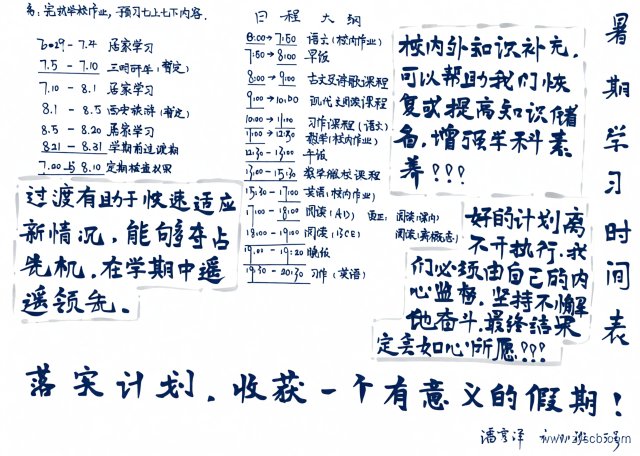 务：完成学校作业，预习七上七下内容.
6.29 - 7.4 居家学习
7.5 - 7.10 三明研学（暂定）
7.10 - 8.1 居家学习
8.1 - 8.5 西安旅游（暂定）
8.5 - 8.20 居家学习
8.21 - 8.31 学期前过渡期
7.00 与 8.10 定期检查效果
过渡有助于快速适应
新情况，能够夺占
先机，在学期中遥
遥领先.
日程大纲
8:00→7:50 语文（校内作业）
7:50→8:00 早饭
8:00→9:00 古文及诗歌课程
9:00→10:00 现代文阅读课程
10:00→11:00 习作课程（语文）
11:00→12:30 数学（校内作业）
12:30 - 13:00 午饭
13:00 - 15:30 数学服校课程
15:30 - 17:00 英语（校内作业）
17:00 - 18:00 阅读（AD） 更正：阅读（课内）
18:00 - 19:00 阅读（BCE） 阅读
19:00 - 19:20 晚饭
19:30 - 20:30 习作（英语）
校内外知识补充，
可以帮助我们恢
复或提高知识储
备，增强学科素
养！！！
好的计划离
不开执行.我
们必须由自己的内
心监督，坚持不懈
地奋斗.最终结果
定会如心所愿！！！
暑期学习时间表
落实计划，收获一个有意义的假期！
潘亨泽
www.zyscb.com